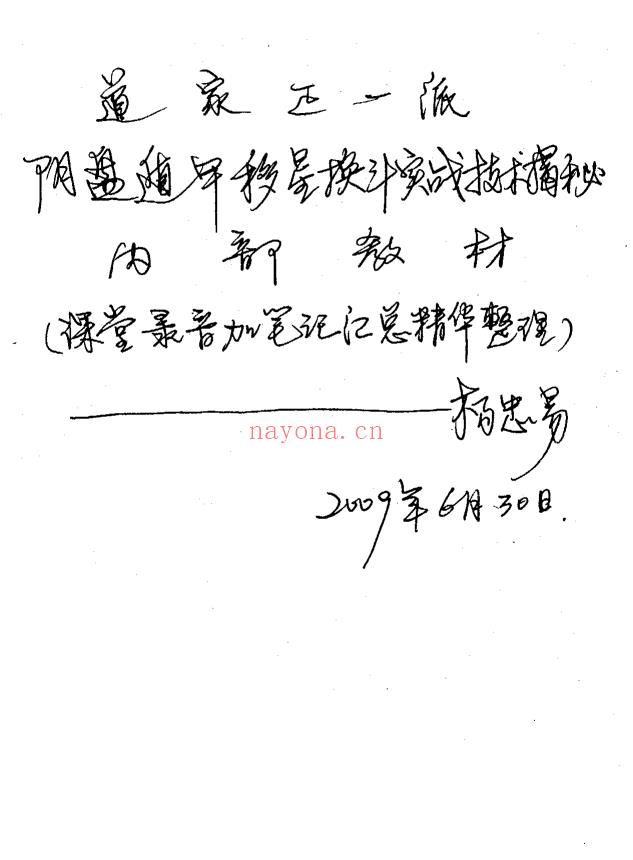 道家正一派
阴盘遁甲移星换斗实战技术揭秘
内部教材
(课堂录音加笔记汇总精华整理)
——杨忠易
nayona.cn
2009年6月30日.